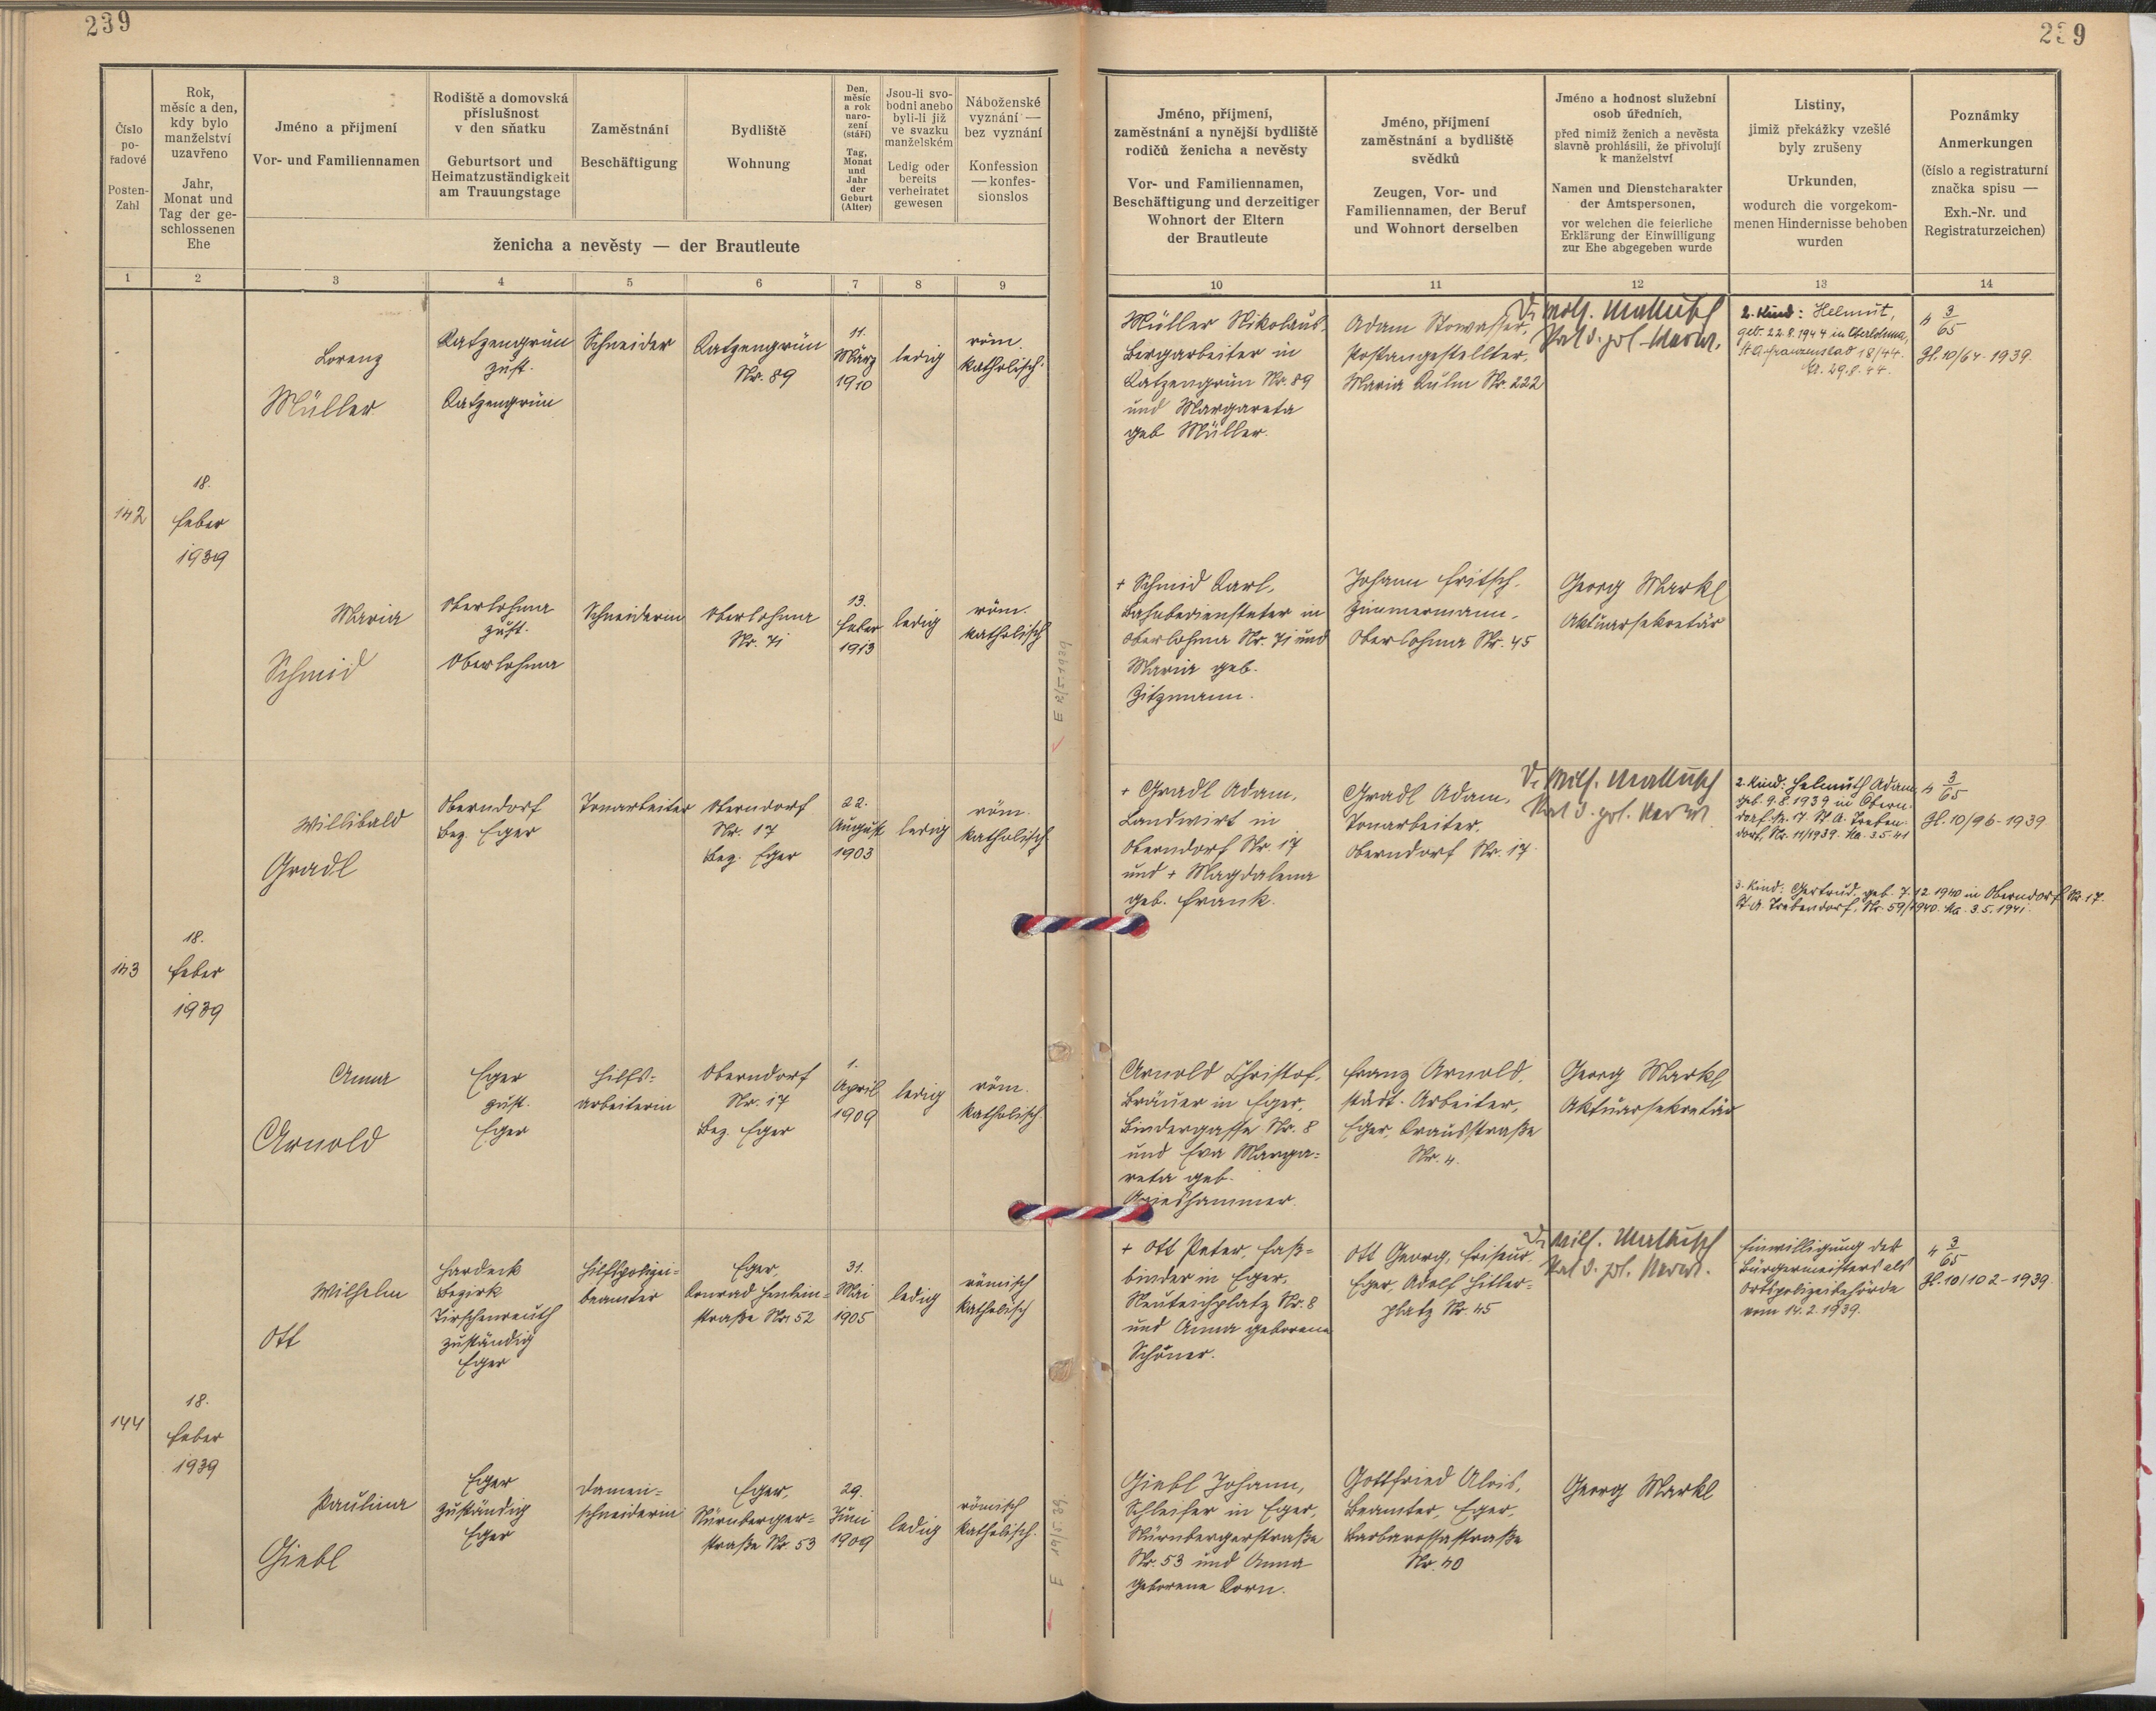 239
239
Číslo
po-
řadové
Posten-
Zahl
Rok,
měsíc a den,
kdy bylo
manželství
uzavřeno
Jahr,
Monat und
Tag der ge-
schlossenen
Ehe
Jméno a přijmení
Vor- und Familiennamen
Rodiště a domovská
příslušnost
v den sňatku
Geburtsort und
Heimatzuständigkeit
am Trauungstage
Zaměstnání
Beschäftigung
Bydliště
Wohnung
Den,
měsíc
a rok
naro-
zení
(stáří)
Tag,
Monat
und
Jahr
der
Geburt
(Alter)
Jsou-li svo-
bodni anebo
byli-li již
ve svazku
manželském
Ledig oder
bereits
verheiratet
gewesen
Náboženské
vyznání —
bez vyznání
Konfession
— konfes-
sionslos
ženicha a nevěsty — der Brautleute
Jméno, příjmení,
zaměstnání a nynější bydliště
rodičů ženicha a nevěsty
Vor- und Familiennamen,
Beschäftigung und derzeitiger
Wohnort der Eltern
der Brautleute
Jméno, příjmení
zaměstnání a bydliště
svědků
Zeugen, Vor- und
Familiennamen, der Beruf
und Wohnort derselben
Jméno a hodnost služební
osob úředních,
před nimiž ženich a nevěsta
slavně prohlásili, že přivolují
k manželství
Namen und Dienstcharakter
der Amtspersonen,
vor welchen die feierliche
Erklärung der Einwilligung
zur Ehe abgegeben wurde
Listiny,
jimiž překážky vzešlé
byly zrušeny
Urkunden,
wodurch die vorgekom-
menen Hindernisse behoben
wurden
Poznámky
Anmerkungen
(číslo a registraturní
značka spisu —
Exh.-Nr. und
Registraturzeichen)
1 2 3 4 5 6 7 8 9 10 11 12 13 14
142
18.
Feber
1939
Lorenz
Müller
Katzengrün
zust.
Katzengrün
Schneider
Katzengrün
Nr. 89
11.
März
1910
ledig
röm.
katholisch.
Müller Nikolaus,
Bergarbeiter in
Katzengrün Nr. 89
und Margareta
geb. Müller.
Adam Stowasser,
Postangestellter,
Maria Kulm Nr. 222
2. Kind: Helmut,
geb. 22.8.1944 in Oberlohma,
St.A. Franzensbad 18/44.
29.8.44.
4 3/65
Zl. 10/64-1939.
Maria
Schmid
Oberlohma
zust.
Oberlohma
Schneiderin
Oberlohma
Nr. 71
13.
Feber
1913
ledig
röm.
katholisch
+ Schmid Karl,
Bahnbediensteter in
Oberlohma Nr. 71 und
Maria geb.
Zitzmann.
Johann Fritsch,
Zimmermann,
Oberlohma Nr. 45
Georg Markl
Aktuarsekretär
143
18.
Feber
1939
Willibald
Gradl
Oberndorf
Bez. Eger
Tonarbeiter
Oberndorf
Nr. 17
Bez. Eger
22.
August
1903
ledig
röm.
katholisch.
+ Gradl Adam,
Landwirt in
Oberndorf Nr. 17
und + Magdalena
geb. Frank.
Gradl Adam,
Tonarbeiter,
Oberndorf Nr. 17.
2. Kind: Helmuth Adam,
geb. 9.8.1939 in Obern-
dorf Nr. 17. St.A. Treben-
dorf, Nr. 11/1939. 3.5.41
3. Kind: Gertrud, geb. 7.12.1940 in Oberndorf Nr. 17.
St.A. Trebendorf, Nr. 59/1940. 3.5.1941.
4 3/65
Zl. 10/96-1939
Anna
Arnold
Eger
zust.
Eger
Hilfs-
arbeiterin
Oberndorf
Nr. 17
Bez. Eger
1.
April
1909
ledig
röm.
katholisch.
Arnold Christof,
Bräuer in Eger,
Bindergasse Nr. 8
und Eva Marga-
reta geb.
Franz Arnold,
städt. Arbeiter,
Eger, Krausstraße
Nr. 4.
Georg Markl
Aktuarsekretär
144
18.
Feber
1939
Wilhelm
Ott
Hardeck
Bezirk
Tirschenreuth
zuständig
Eger
Hilfspolizei-
beamter
Eger,
Konrad Henlein-
straße Nr. 52
31.
Mai
1905
ledig
römisch
katholisch
+ Ott Peter, Faß-
binder in Eger,
Neuteichplatz Nr. 8
und Anna geborene
Schöner.
Ott Georg, Friseur
Eger, Adolf Hitler-
platz Nr. 45
Einwilligung des
Bürgermeisters als
Ortspolizeibehörde
vom 14.2.1939.
4 3/65
Zl. 10/102-1939.
Paulina
Giebl
Eger
zuständig
Eger
Damen-
schneiderin
Eger,
Nürnberger-
straße Nr. 53
29.
Juni
1909
ledig
römisch
katholisch.
Giebl Johann,
Schleifer in Eger,
Nürnbergerstraße
Nr. 53 und Anna
geborene Korn.
Gottfried Alois,
Beamter, Eger,
Barbarossastraße
Nr. 40
Georg Markl